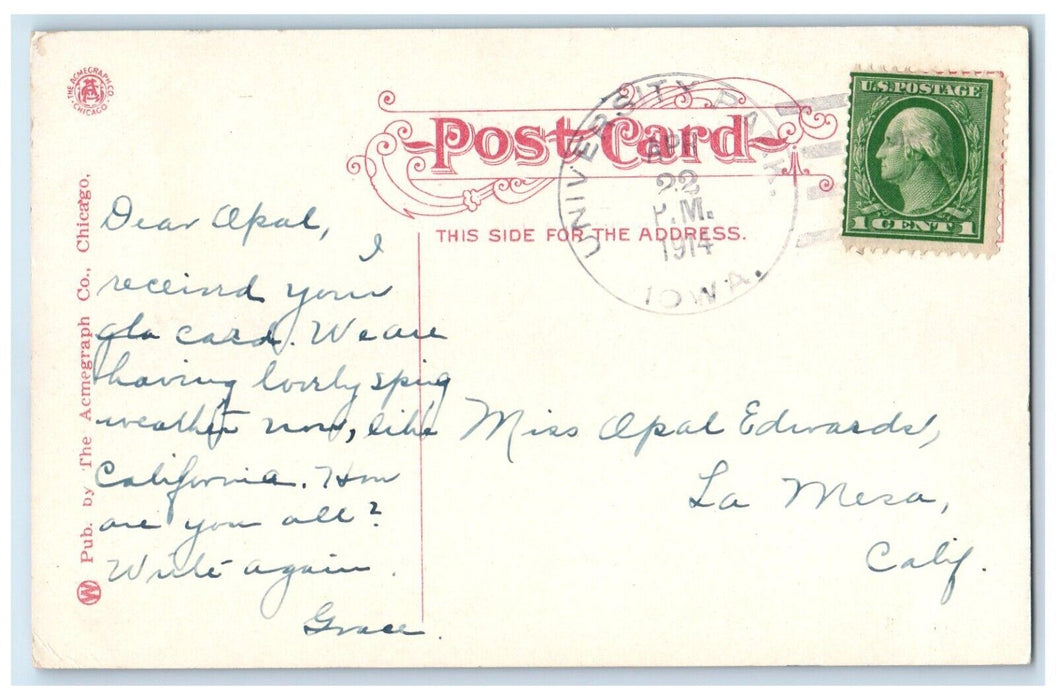 THE ACMEGRAPH CO.
CHICAGO
Post Card
THIS SIDE FOR THE ADDRESS.
UNIVERSITY PARK
APR
22
P.M.
1914
IOWA.
U.S. POSTAGE
1 CENT 1
Pub. by The Acmegraph Co., Chicago.
Dear Opal,
I
received your
card. We are
having lovely spig
weather now, like
California. How
are you all?
Write again.
Grace.
Miss Opal Edwards,
La Mesa,
Calif.